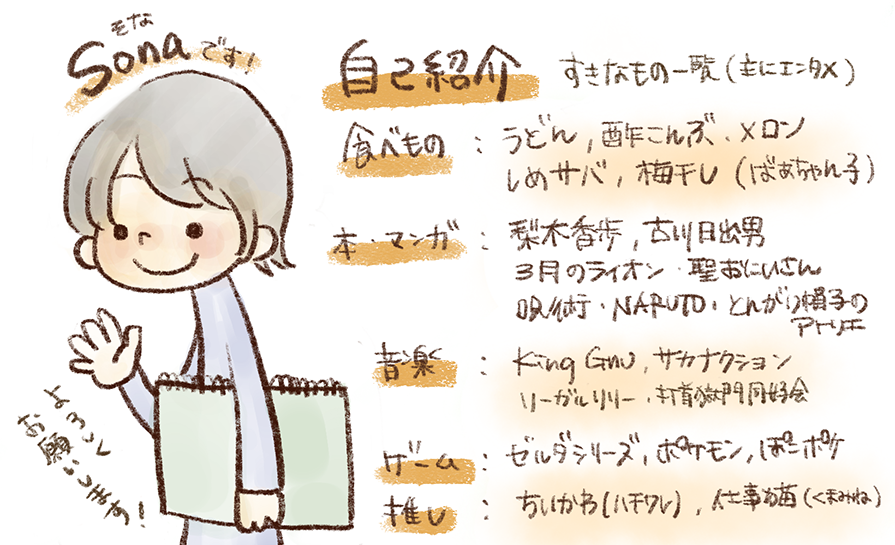 そな
Sonaです!
自己紹介
すきなもの一覧(主にエンタメ)
食べもの : うどん, 酢こんぶ・メロン
しめサバ, 梅干し(ばあちゃん子)
本・マンガ : 梨木香歩, 古川日出男
3月のライオン・聖おにいさん
呪術・NARUTO・とんがり帽子の
アトリエ
音楽 : King Gnu, サカナクション
リーガルリリー・打首獄門同好会
ゲーム : ゼルダシリーズ, ポケモン, ぽこポケ
推し : ちいかわ(ハチワレ), 仕事猫(くまみね)
よろしく
お願いします!